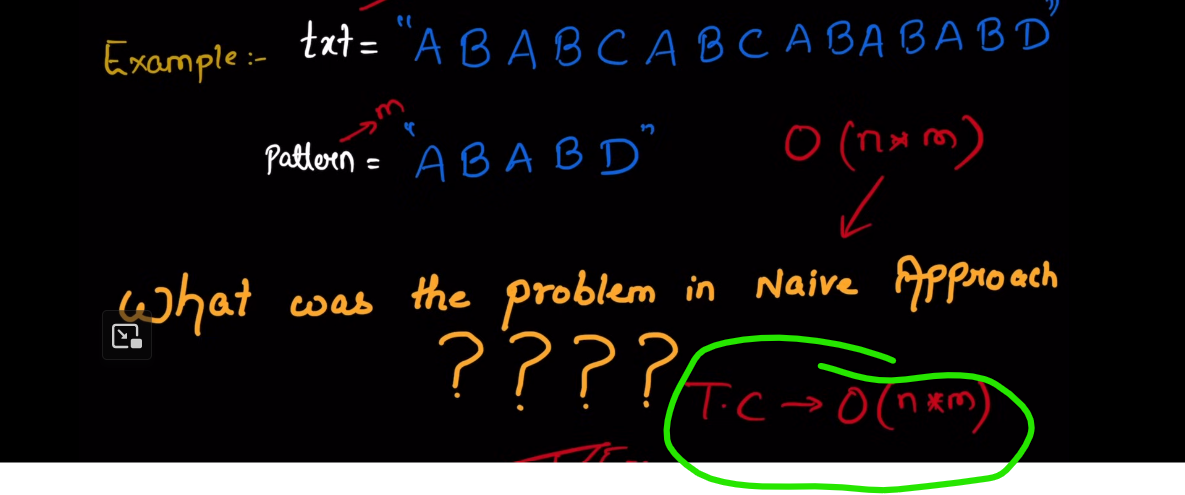 Example :- txt = "A B A B C A B C A B A B A B D"
m
Pattern = "A B A B D"
O (n * m)
What was the problem in Naive Approach
? ? ? ?
T.C → O(n * m)